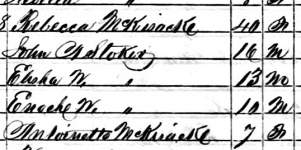 8 Rebecca McKisacke 40 F
John A Stokes 16 m
Elisha W. " 13 m
Enoche W. " 10 m
Antoinette McKisacke 7 F